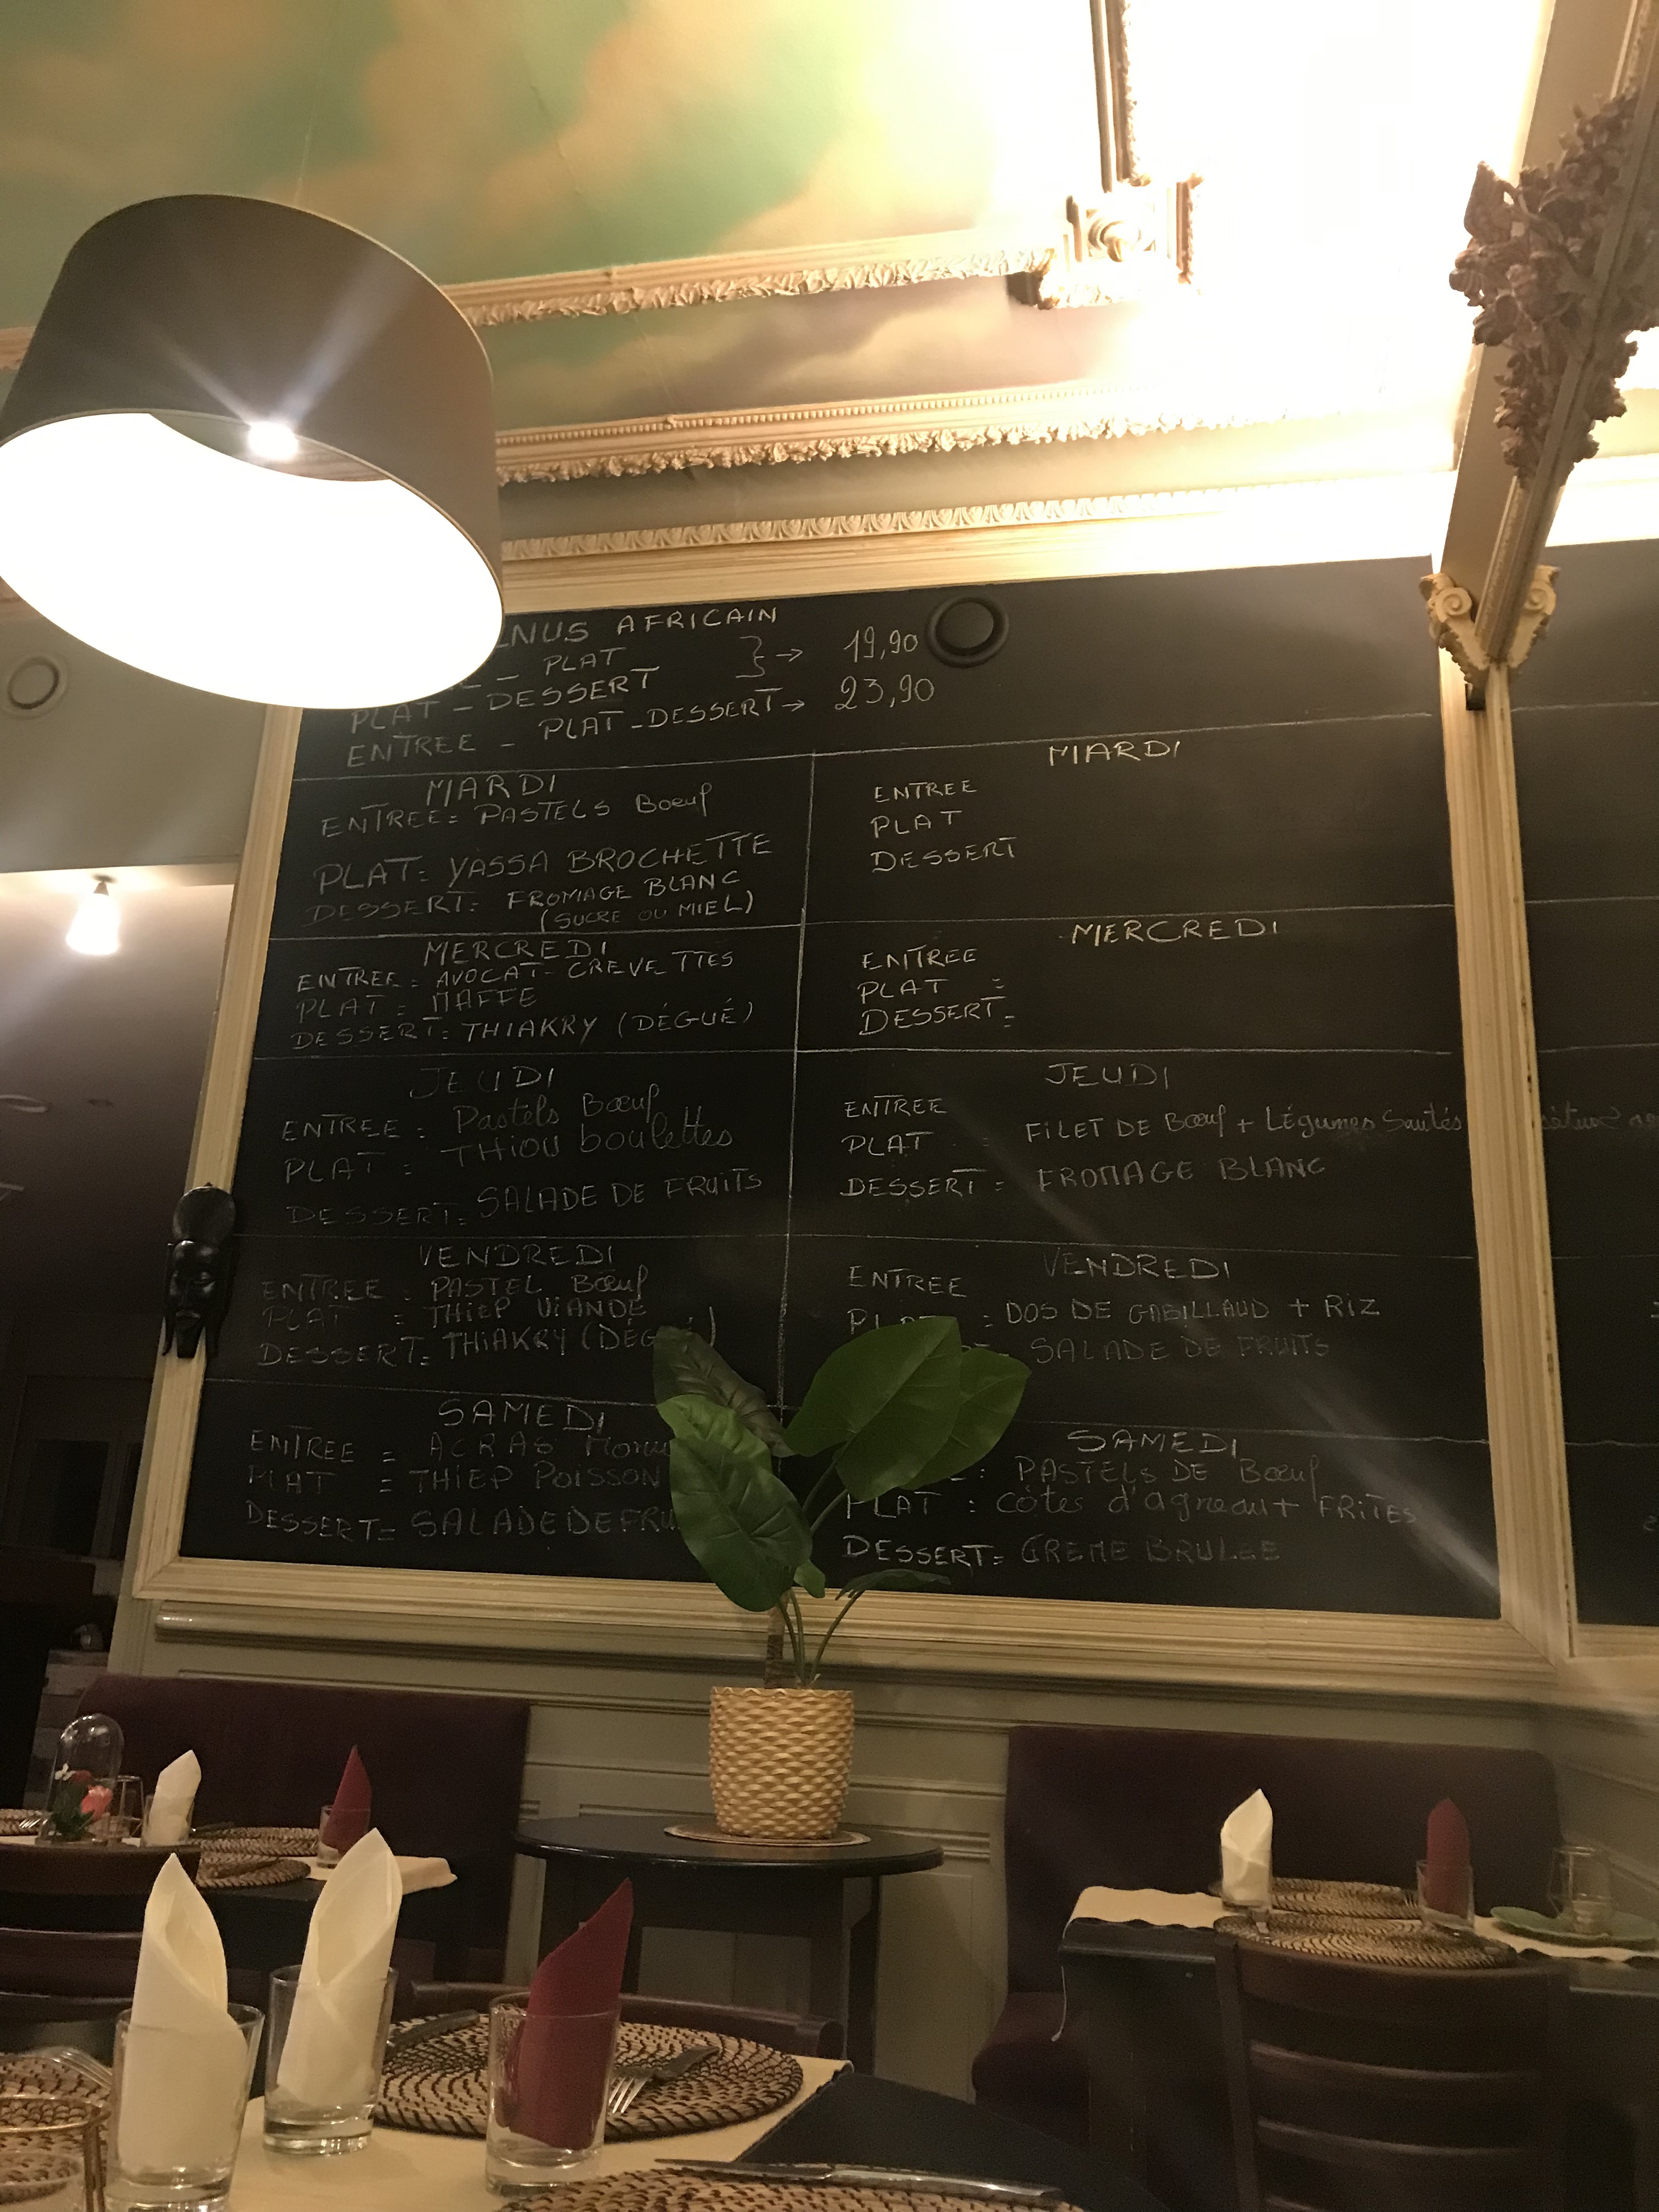 AFRICAIN
- PLAT } → 19,90
PLAT - DESSERT
ENTREE - PLAT - DESSERT → 23,90
MARDI
ENTREE = PASTELS Boeuf
PLAT = YASSA BROCHETTE
DESSERT = FROMAGE BLANC
(SUCRE OU MIEL)
MERCREDI
ENTREE = AVOCAT - CREVETTES
PLAT = MAFFE
DESSERT = THIAKRY (DÉGUÉ)
JEUDI
ENTREE = Pastels Bœuf
PLAT = THIOU boulettes
DESSERT = SALADE DE FRUITS
VENDREDI
ENTREE = PASTEL Bœuf
PLAT = THIEP VIANDE
DESSERT = THIAKRY
SAMEDI
ENTREE = ACRAS
PLAT = THIEP POISSON
DESSERT = SALADE DE
MARDI
ENTREE
PLAT
DESSERT
MERCREDI
ENTREE
PLAT =
DESSERT =
JEUDI
ENTREE
PLAT = FILET DE Bœuf + Légumes Sautés
DESSERT = FROMAGE BLANC
VENDREDI
ENTREE
PLAT = DOS DE GABILLAUD + RIZ
SALADE DE FRUITS
SAMEDI
PASTELS DE Bœuf
PLAT : côtes d'agneau + FRITES
DESSERT = CREME BRULEE